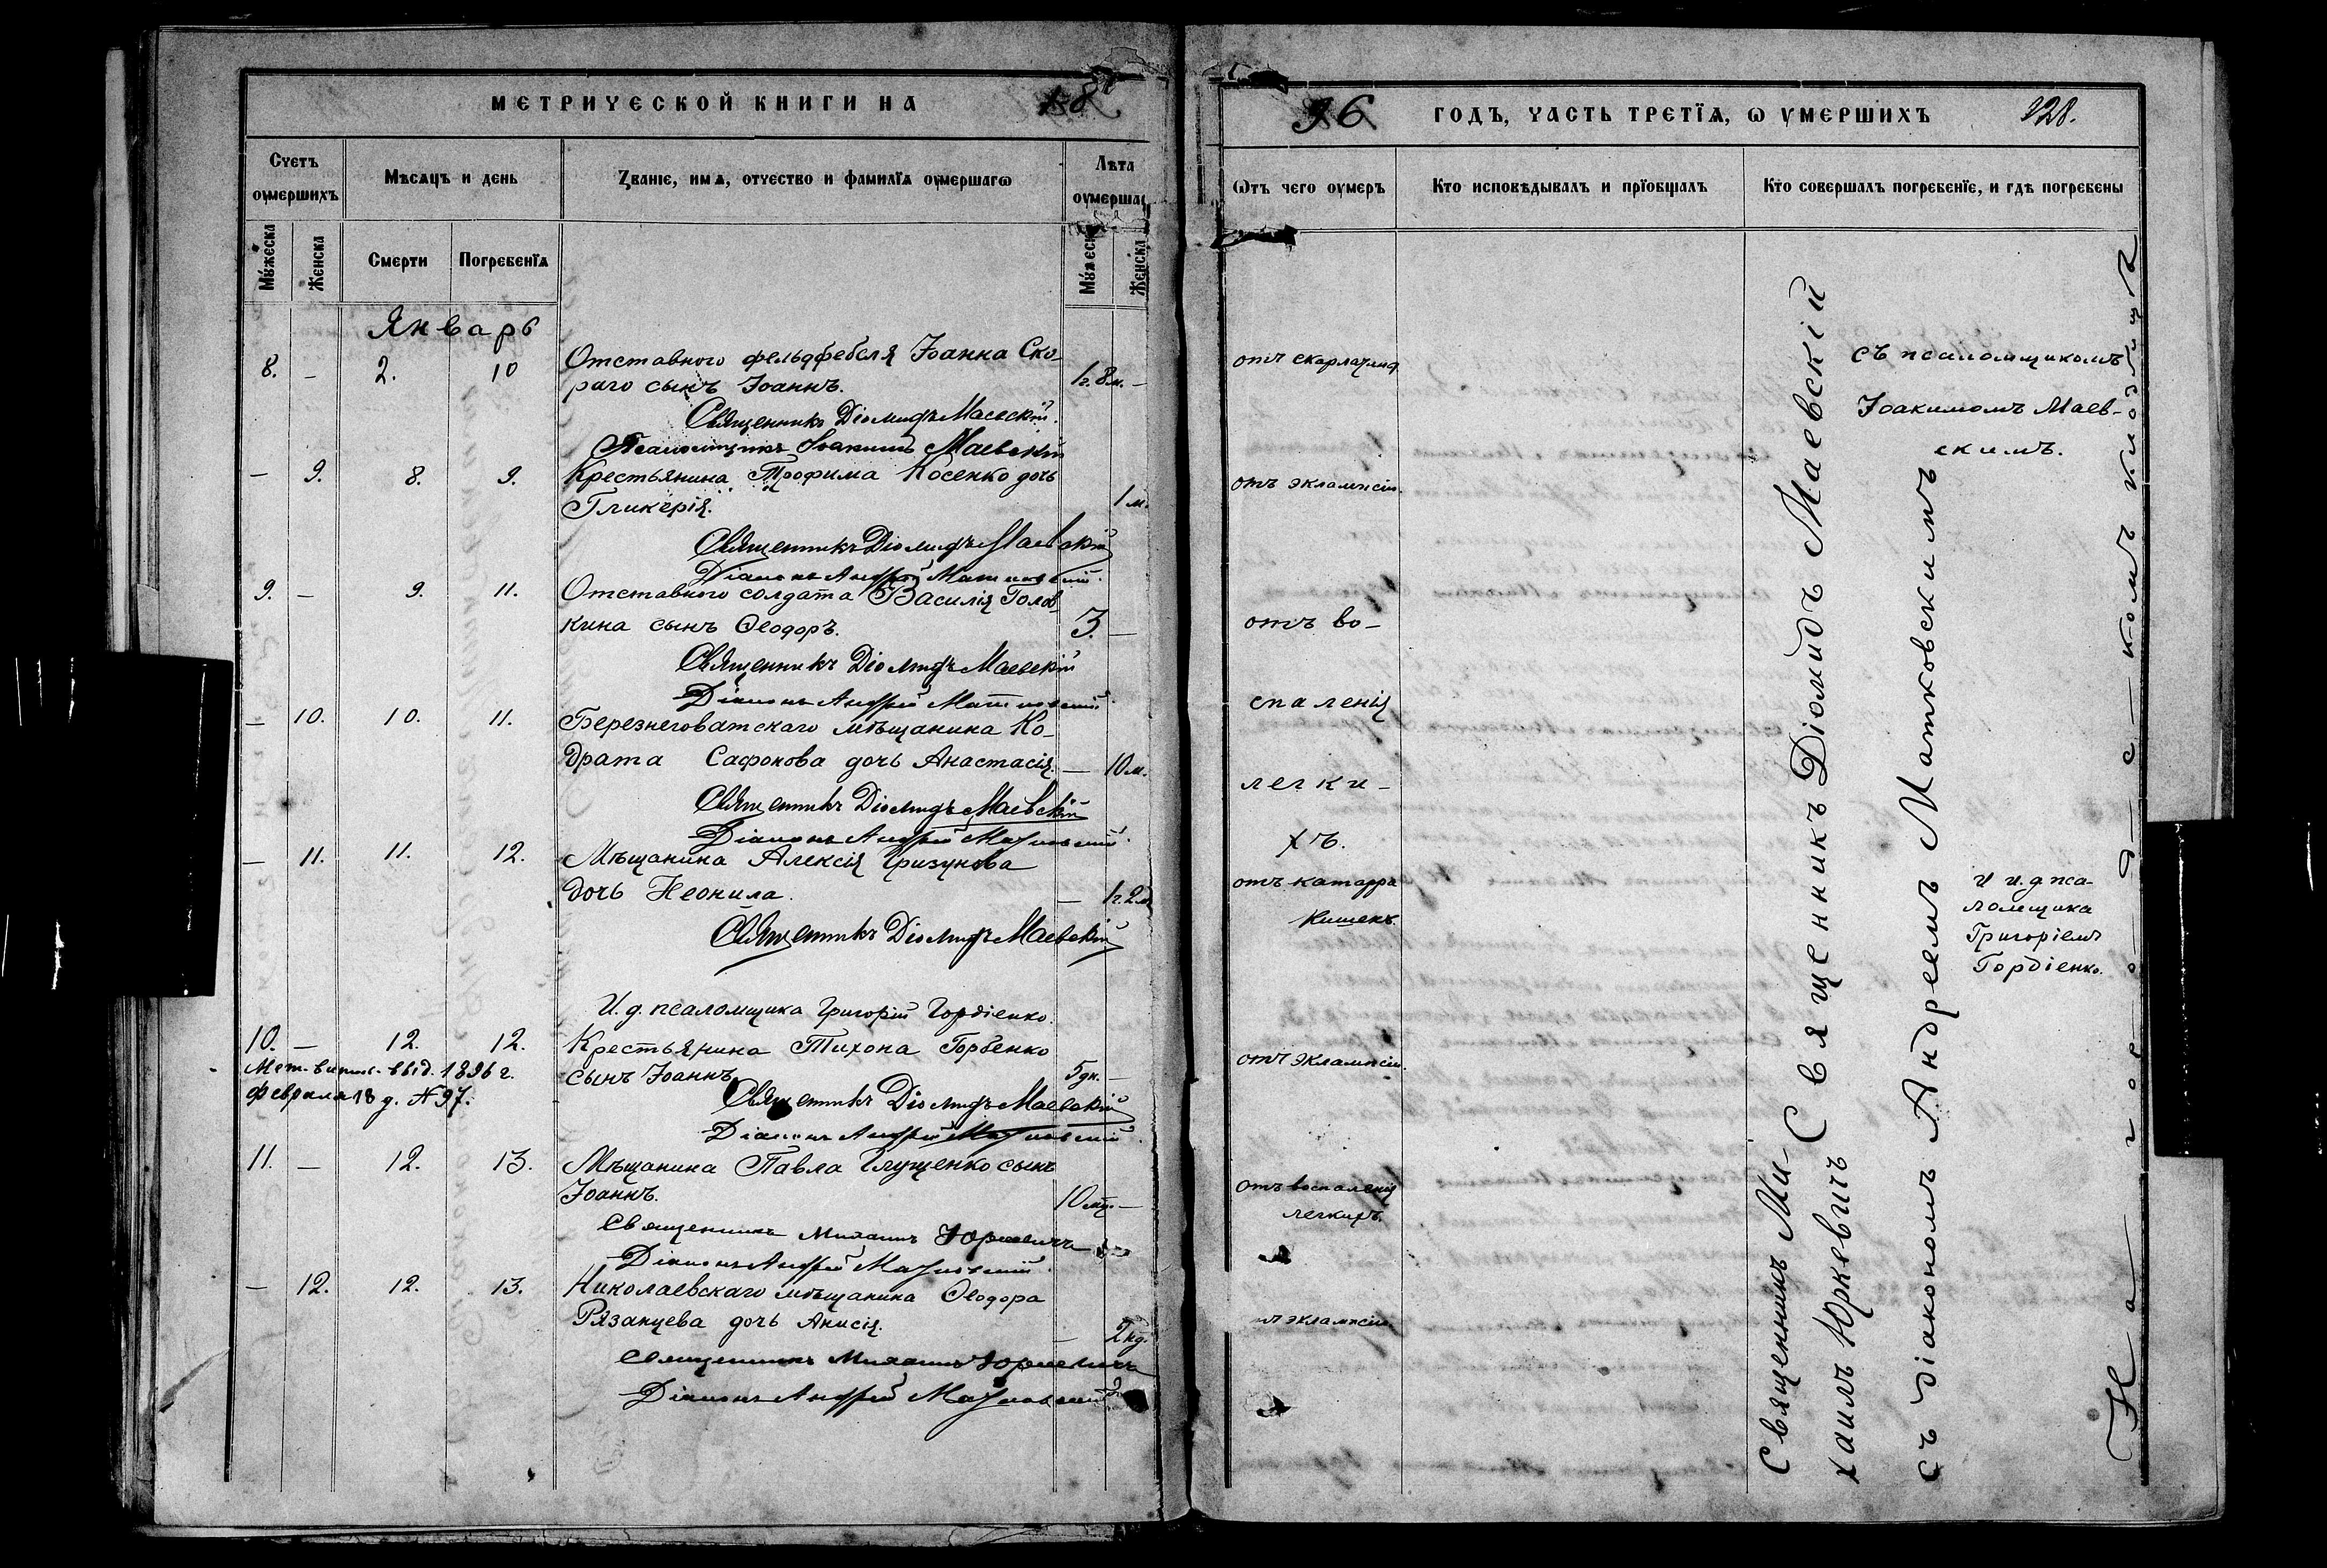 МЕТРИЧЕСКОЙ КНИГИ НА 18
Счетъ оумершихъ
Мѣсяцъ и день
Званіе, имя, отчество и фамилїя оумершагѡ
Лѣта оумершаг
Мꙋжеска
Женска
Смерти
Погребенїя
Мꙋжеск
Женска
Январь
8. – 2. 10 Отставного фельдфебеля Іоанна Ско-
раго сынъ Іоаннъ. 1г. 8м. –
Священникъ Діомидъ Маевскій.
Псаломщикъ Іоакимъ Маевскій
– 9. 8. 9. Крестьянина Трофима Косенко дочь
Гликерія. 1 м.
Священникъ Діомидъ Маевскій
Діаконъ Андрей Матковскій.
9. – 9. 11. Отставного солдата Василія Голов-
кина сынъ Ѳеодоръ. 3. –
Священникъ Діомидъ Маевскій
Діаконъ Андрей Матковскій.
– 10. 10. 11. Березнеговатскаго мѣщанина Ко-
драта Сафонова дочь Анастасія. – 10 м.
Священникъ Діомидъ Маевскій
Діаконъ Андрей Матковскій.
– 11. 11. 12. Мѣщанина Алексія Гризунова
дочь Неонила. – 1г. 2м
Священникъ Діомидъ Маевскій
И. д. псаломщика Григорій Гордіенко.
10. – 12. 12. Крестьянина Тихона Горбенко
сынъ Іоаннъ 5 дн. –
Мет. выпись выд. 1896 г.
февраля 18 д. № 97.
Священникъ Діомидъ Маевскій
Діаконъ Андрей Матковскій.
11. – 12. 13. Мѣщанина Павла Глущенко сынъ
Іоаннъ. 10 мц. –
Священникъ Михаилъ Юркевичъ
Діаконъ Андрей Матковскій.
– 12. 12. 13. Николаевскаго мѣщанина Ѳеодора
Рязанцева дочь Анисія. – 2 нд.
Священникъ Михаилъ Юркевичъ
Діаконъ Андрей Матковскій
96 ГОДЪ, ЧАСТЬ ТРЕТЇЯ, Ѡ УМЕРШИХЪ 328.
Ѿтъ чего оумеръ
Кто исповѣдывалъ и прїобщалъ
Кто совершалъ погребенїе, и гдѣ погребены
отъ скарлатин
отъ эклампсіи.
отъ во-
спаленія
легки-
хъ.
отъ катарра
кишекъ.
отъ эклампсіи.
отъ воспаленія
легкихъ.
эклампсіи.
Священникъ Діомидъ Маевскій
Священникъ Ми-
хаилъ Юркевичъ
съ діакономъ Андреемъ Матковскимъ
съ псаломщикомъ
Іоакимомъ Маев-
скимъ.
и и. д пса-
ломщика
Григоріемъ
Гордіенко.
На городскомъ кладбищѣ